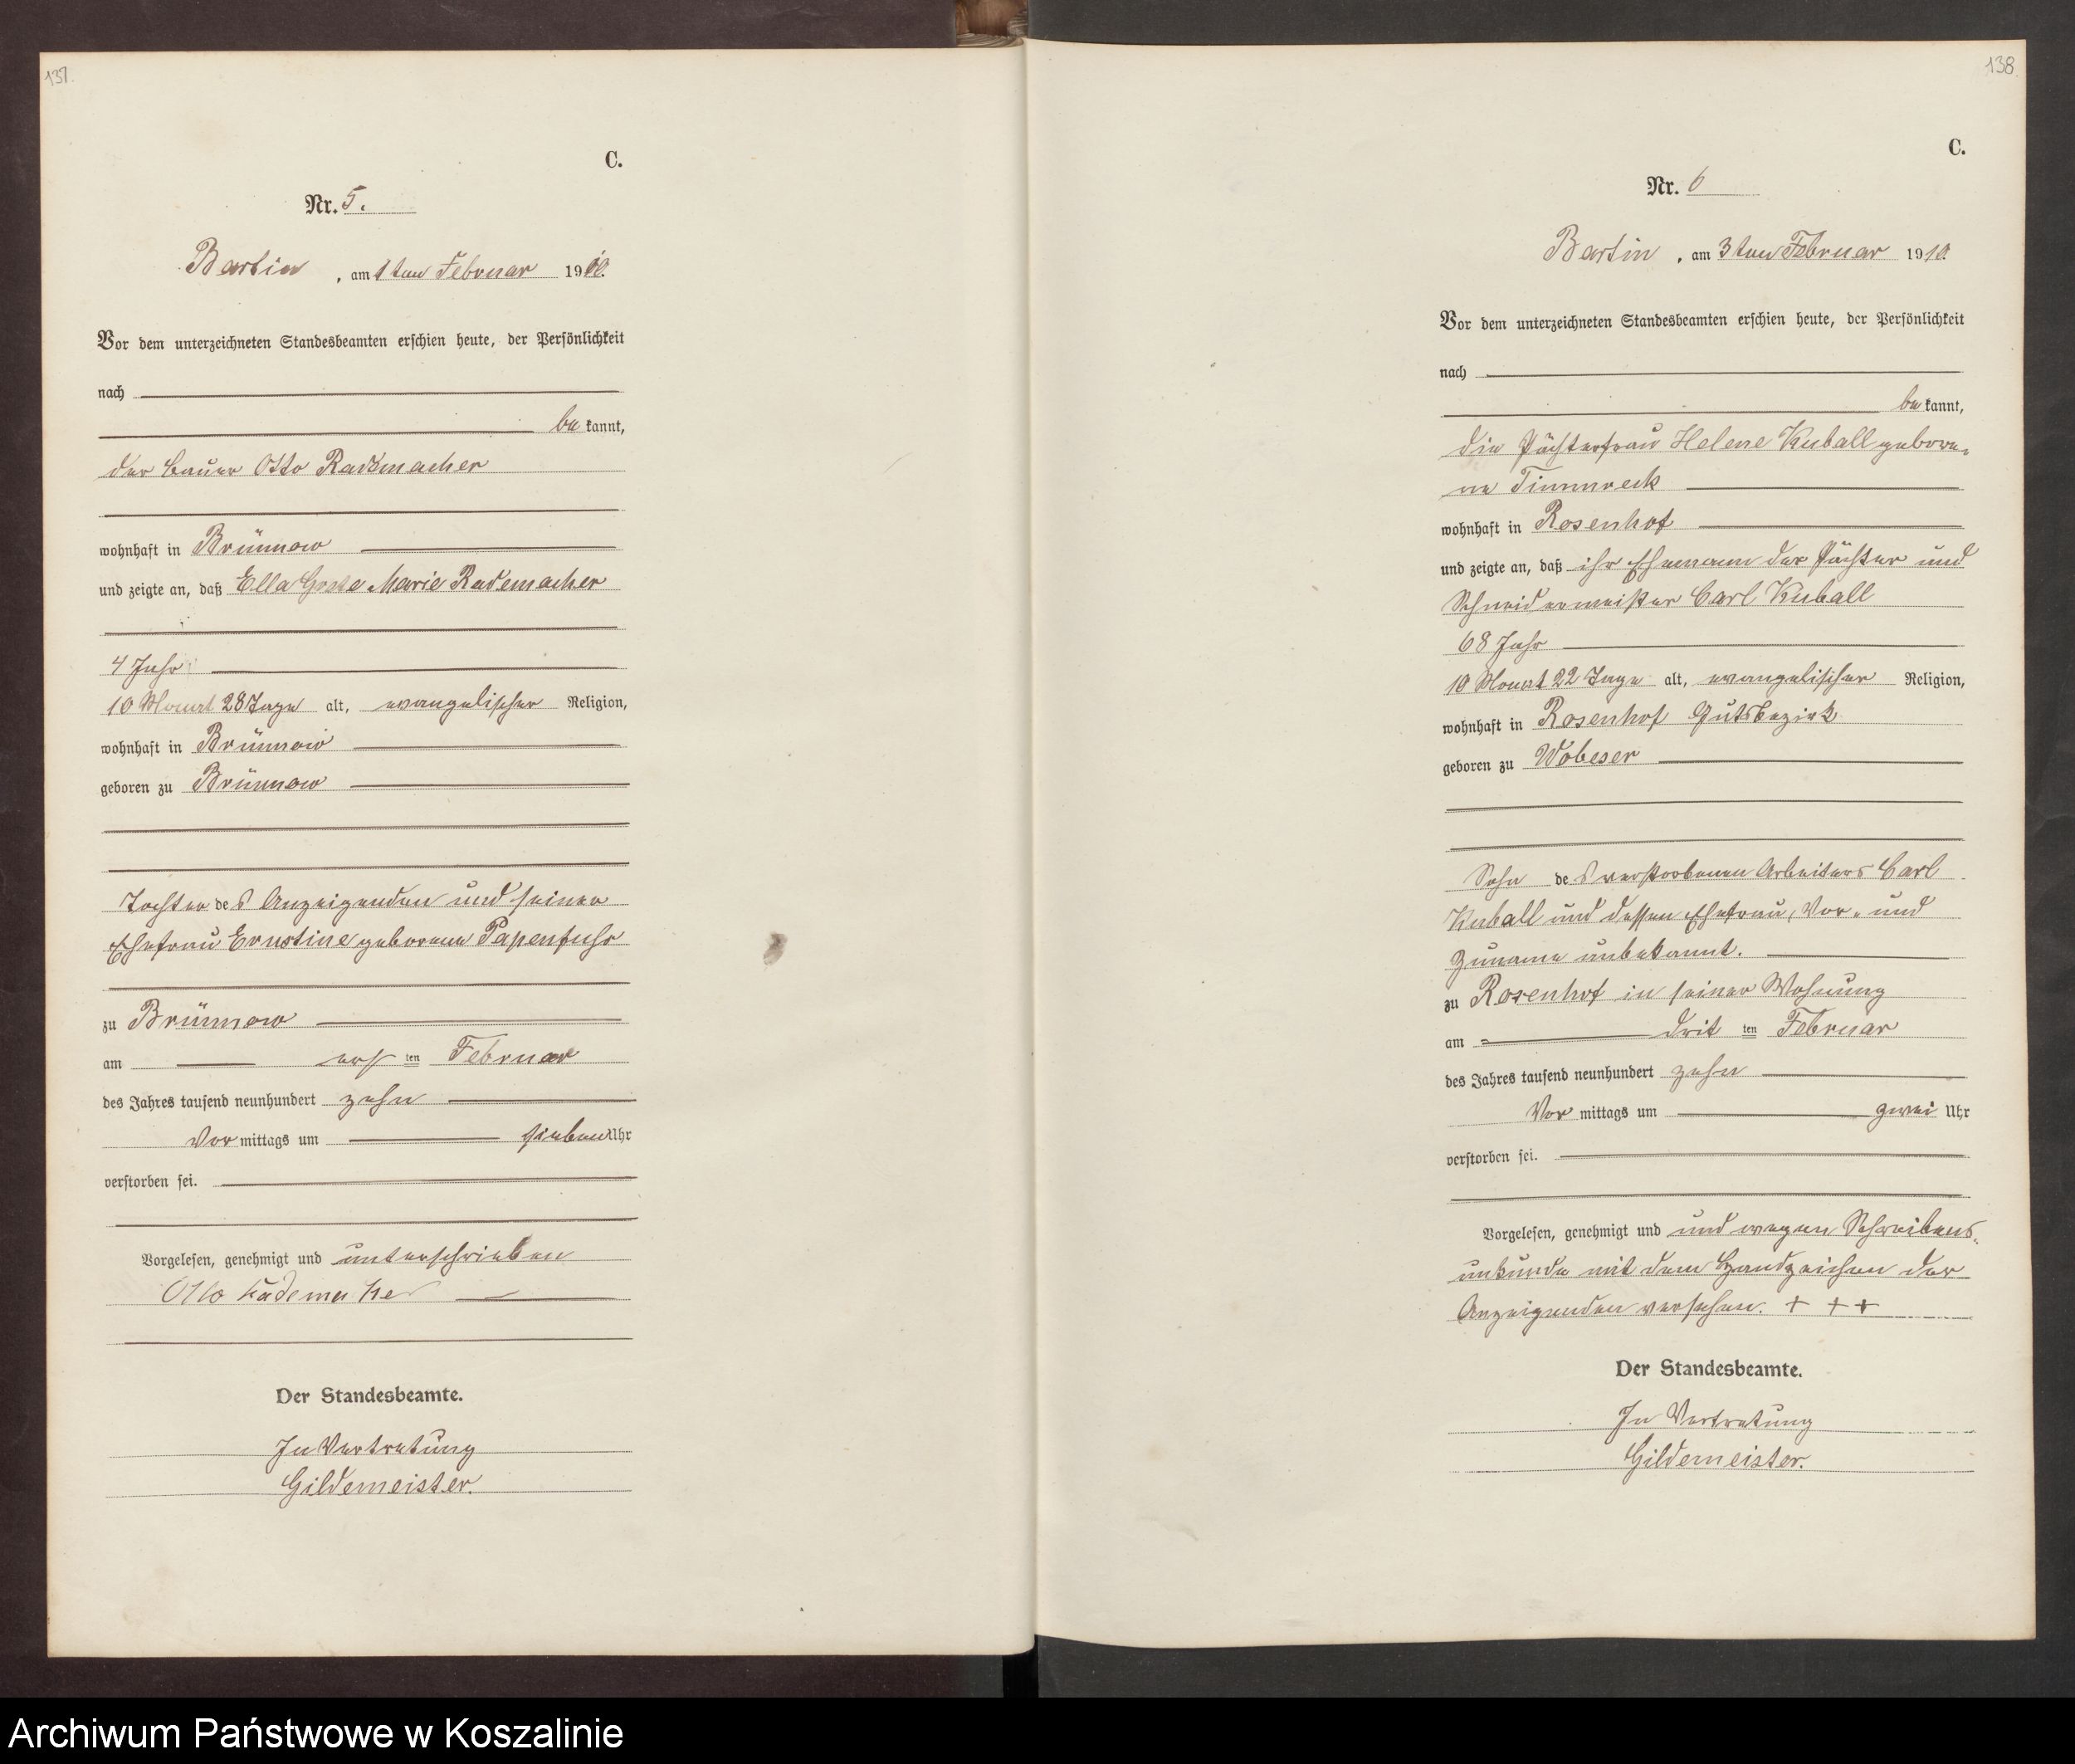 137.
C.
Nr. 5.
Bartin, am 1ten Februar 1910.
Vor dem unterzeichneten Standesbeamten erschien heute, der Persönlichkeit
nach
bekannt,
der Bauer Otto Rademacher
wohnhaft in Brünnow
und zeigte an, daß Ella Grete Marie Rademacher
4 Jahr
10 Monat 28 Tage alt, evangelischer Religion,
wohnhaft in Brünnow
geboren zu Brünnow
Tochter des Anzeigenden und seiner
Ehefrau Ernstine geborene Papenfuhs
zu Brünnow
am ersten Februar
des Jahres tausend neunhundert zehn
Vormittags um sieben Uhr
verstorben sei.
Vorgelesen, genehmigt und unterschrieben
Otto Rademacher
Der Standesbeamte.
In Vertretung
Gildemeister.
138
C.
Nr. 6
Bartin, am 3ten Februar 1910.
Vor dem unterzeichneten Standesbeamten erschien heute, der Persönlichkeit
nach
bekannt,
die Pächterfrau Helene Kuball gebore-
ne Timmreck
wohnhaft in Rosenhof
und zeigte an, daß ihr Ehemann der Pächter und
Schneidermeister Carl Kuball
68 Jahr
10 Monat 22 Tage alt, evangelischer Religion,
wohnhaft in Rosenhof Gutsbezirk
geboren zu Wobeser
Sohn des verstorbenen Arbeiters Carl
Kuball und dessen Ehefrau, Vor- und
Zuname unbekannt.
zu Rosenhof in seiner Wohnung
am dritten Februar
des Jahres tausend neunhundert zehn
Vormittags um zwei Uhr
verstorben sei.
Vorgelesen, genehmigt und und wegen Schreibens-
unkunde mit dem Handzeichen der
Anzeigenden versehen. + + +
Der Standesbeamte.
In Vertretung
Gildemeister.
Archiwum Państwowe w Koszalinie